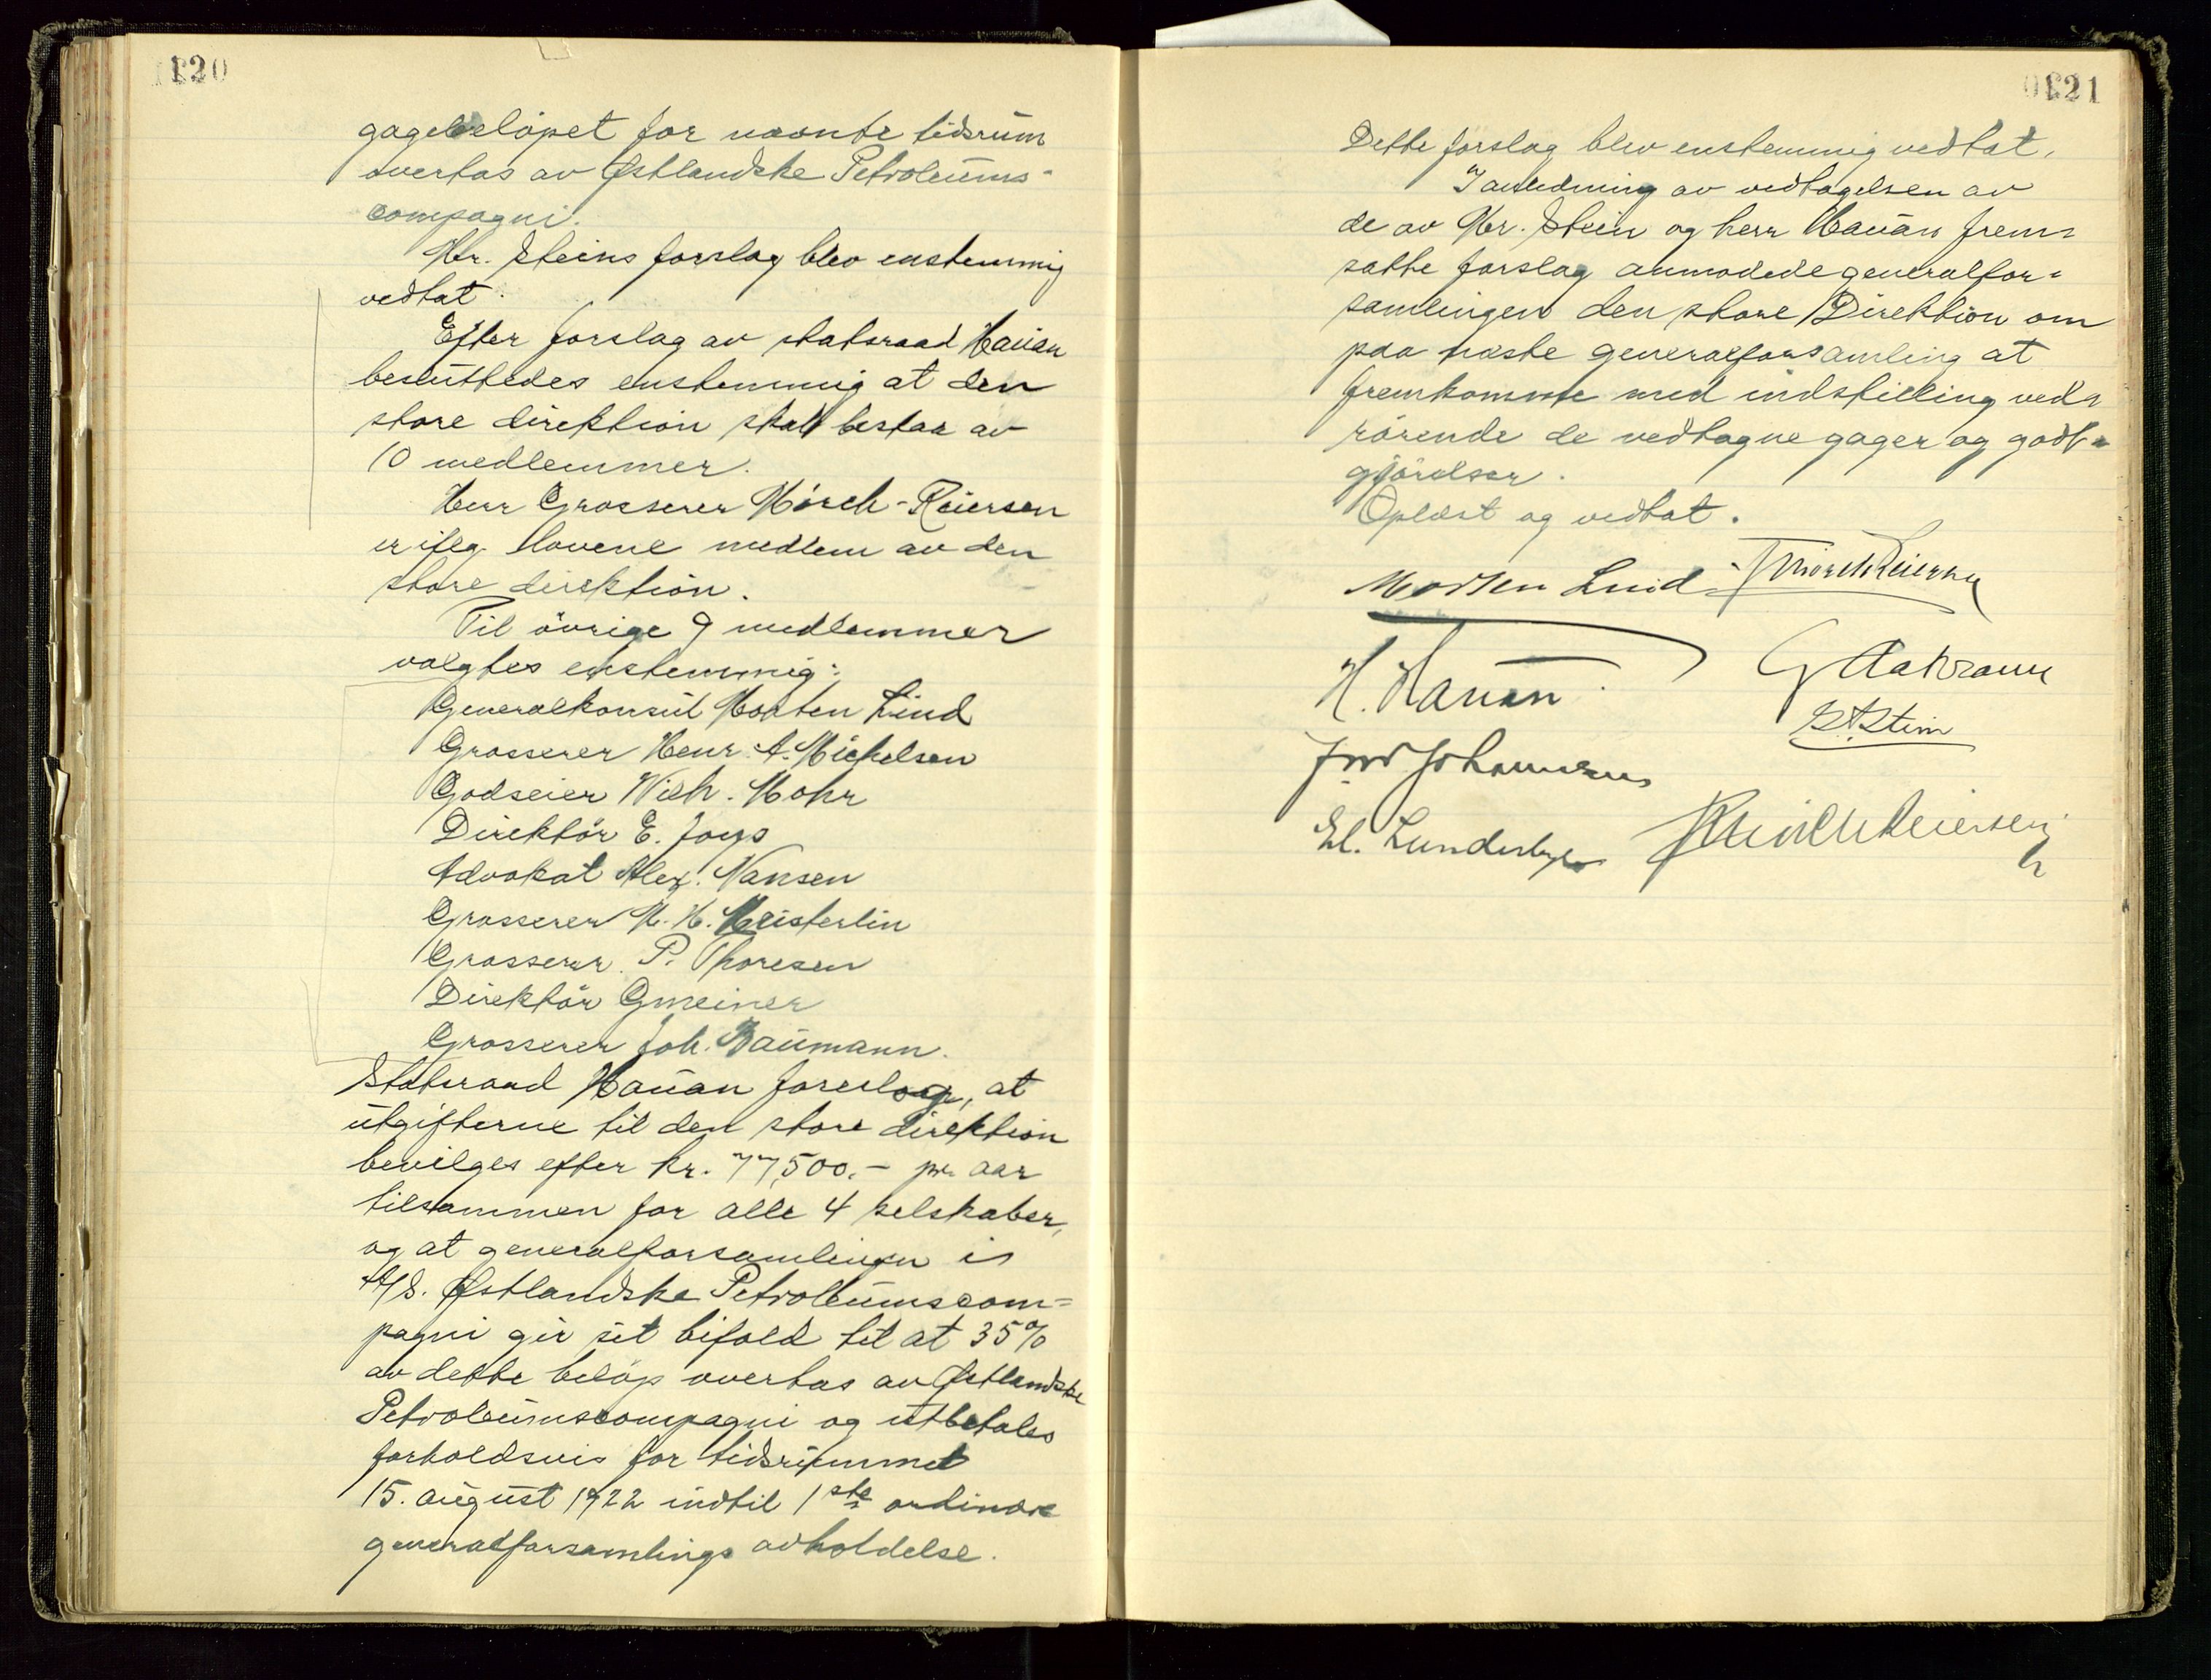 120
gagebeløpet for nævnte tidsrum
overtas av Østlandske Petroleums-
compagni.
Hr. Steins forslag blev enstemmig
vedtat.
Efter forslag av statsraad Hauan
besluttedes enstemmig at den
store direktion skal bestaa av
10 medlemmer.
Herr Grosserer Mørch-Reiersen
er ifølg. lovene medlem av den
store direktion.
Til øvrige 9 medlemmer
valgtes enstemmig:
Generalkonsul Morten Lind
Grosserer Henr. A. Michelsen
Godseier Wilh. Mohr
Direktør E. Joys
Advokat Alex. Nansen
Grosserer M. H. Meisterlin
Grosserer P. Thoresen
Direktør Gmeiner
Grosserer Joh. Baumann.
Statsraad Hauan foreslog, at
utgifterne til den store direktion
bevilges efter kr. 77,500.- pr. aar
tilsammen for alle 4 selskaber,
og at generalforsamlingen i
A/S. Østlandske Petroleumscom=
pagni gir sit bifald til at 35%
av dette beløp overtas av Østlandske
Petroleumscompagni og utbetales
forholdsvis for tidsrummet
15. august 1922 indtil 1ste ordinære
generalforsamlings avholdelse.
121
Dette forslag blev enstemmig vedtat.
I anledning av vedtagelsen av
de av Hr. Stein og herr Hauan frem=
satte forslag anmodede generalfor=
samlingen den store Direktion om
paa næste generalforsamling at
fremkomme med indstilling ved=
rørende de vedtagne gager og godt=
gjørelser.
Oplæst og vedtat.
Morten Lind Mørch Reiersen
H. Hauan
Stein
Johannesen
Mørch Reiersen